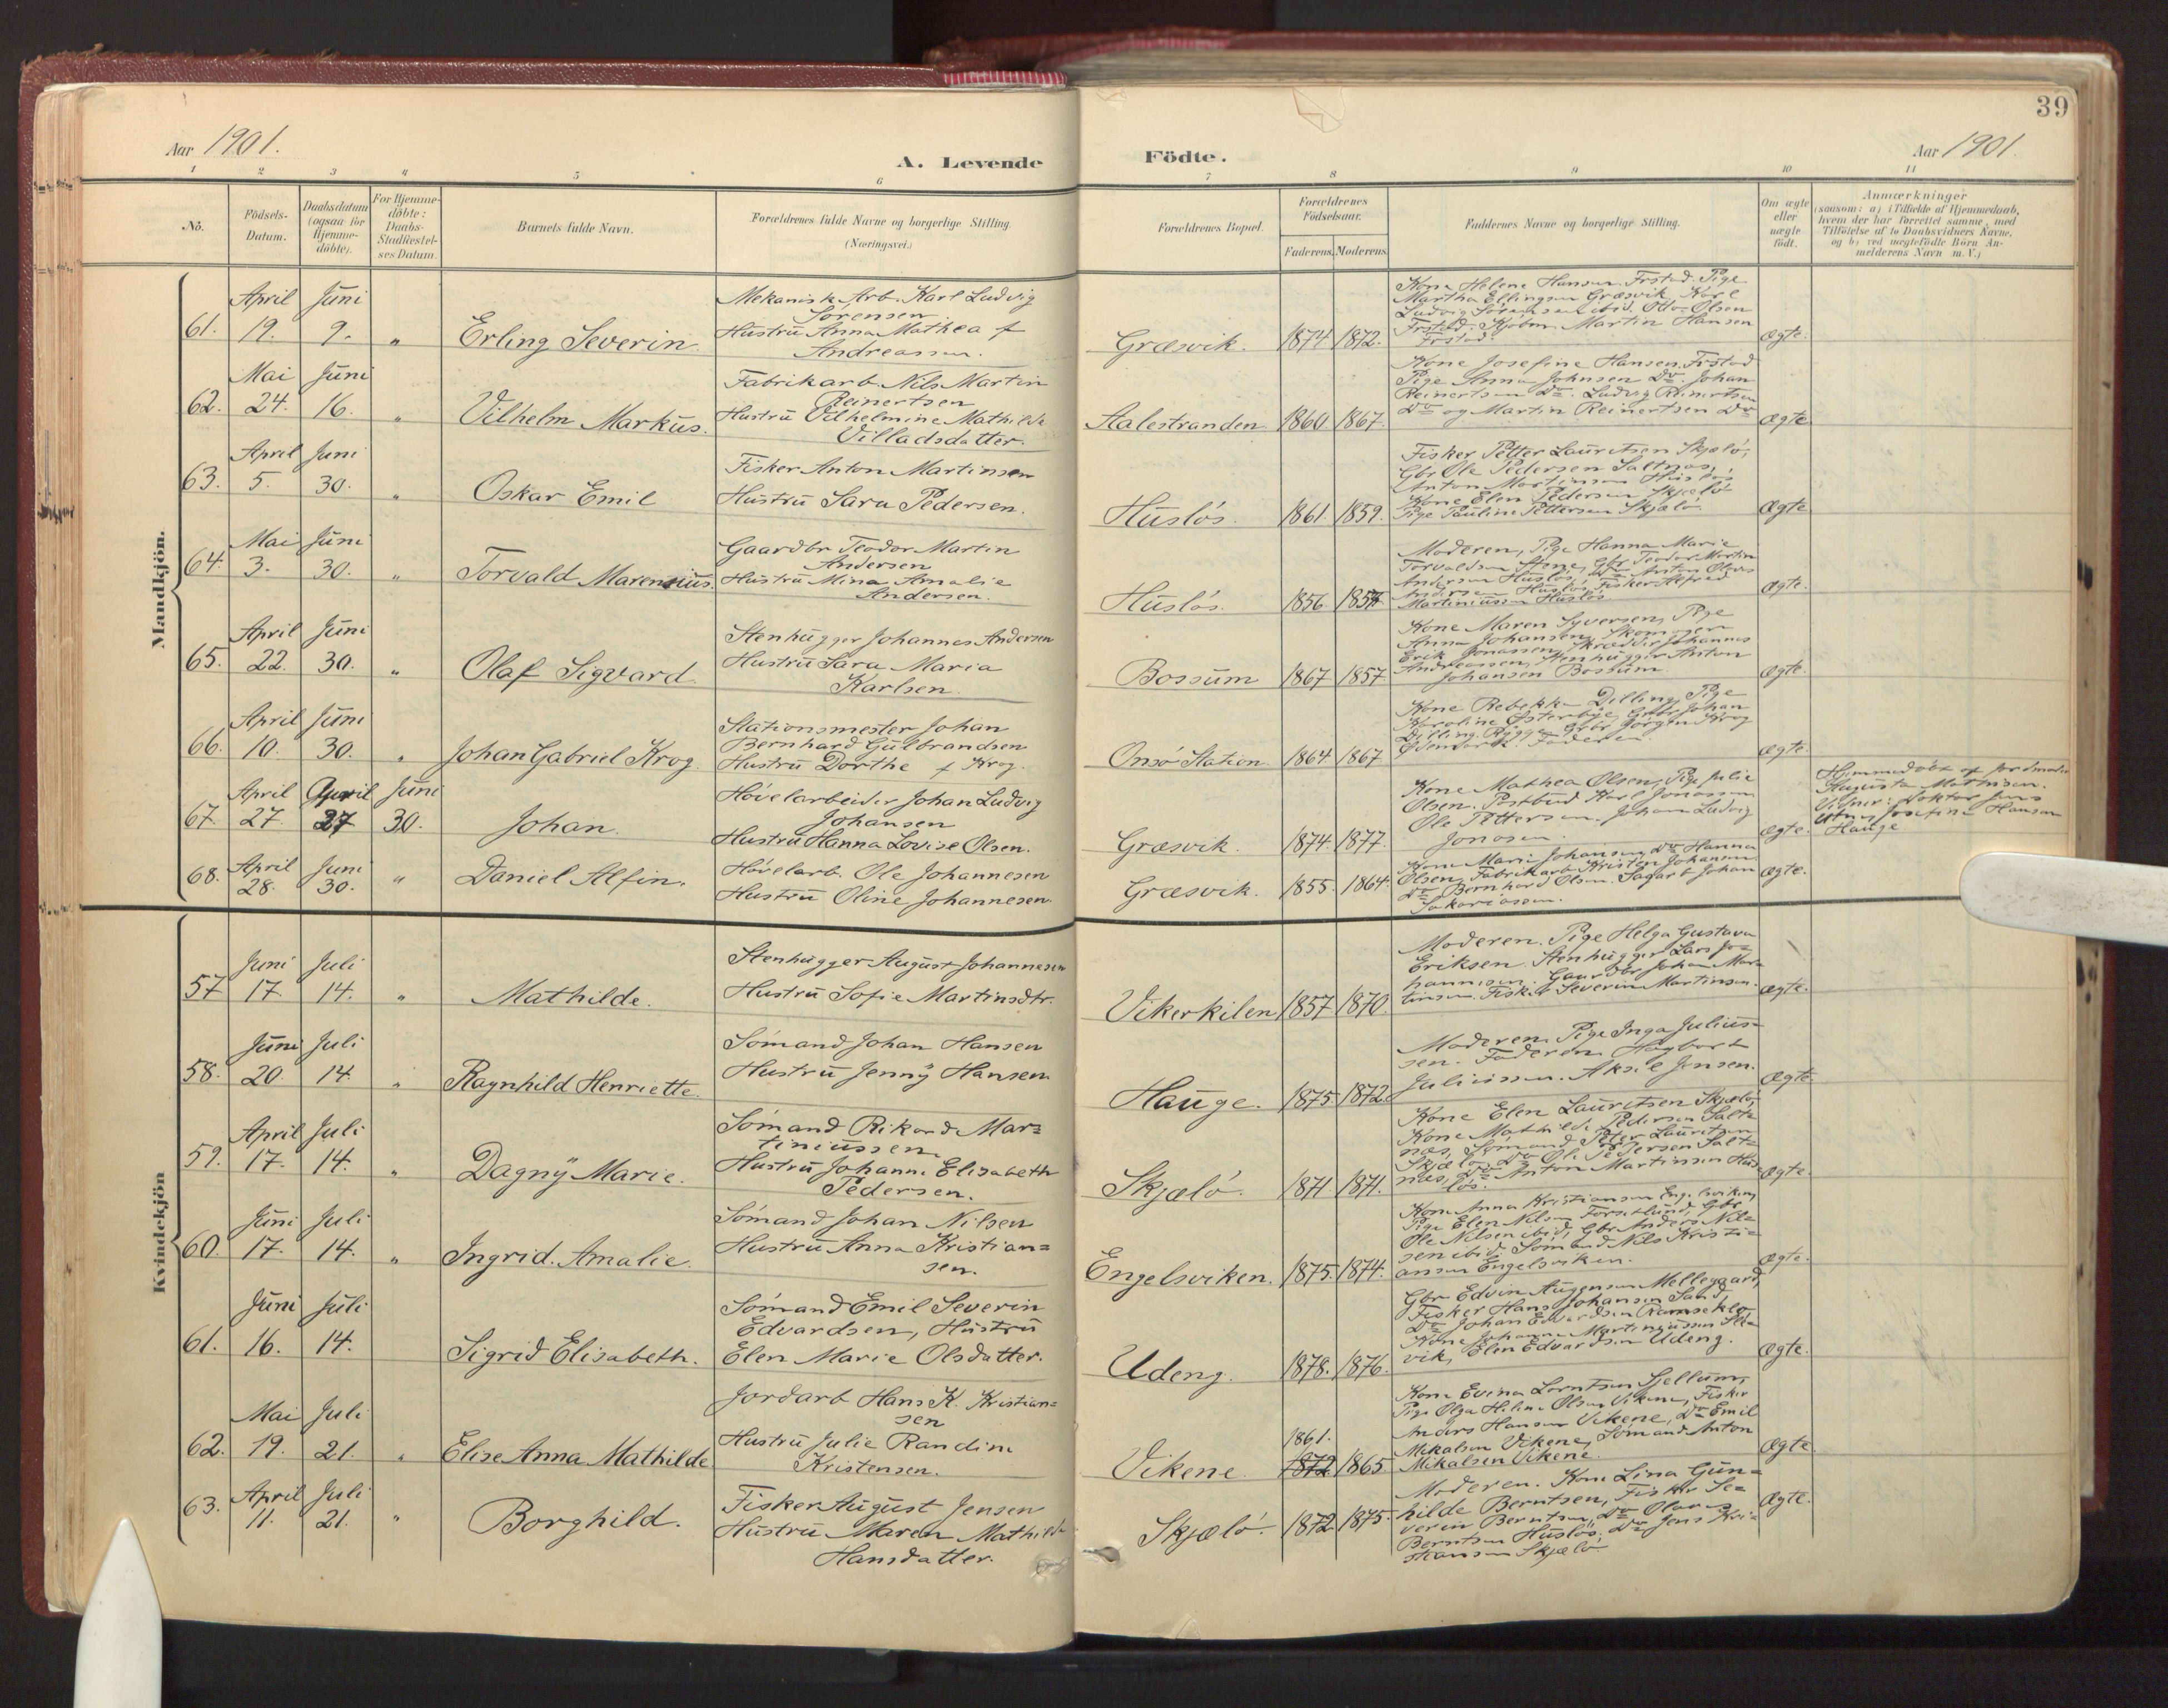 39
Aar 1901.
A. Levende
Födte.
Aar 1901.
1 2 3 4 5 6 7 8 9 10 11
No.
Födsels-Datum.
Daabsdatum (ogsaa for Hjemme-döbte).
For Hjemme-döbte: Daabs-Stadfæstel-ses Datum.
Barnets fulde Navn.
Forældrenes fulde Navne og borgerlige Stilling.
(Næringsvei.)
Forældrenes Bopæl.
Forældrenes Födselsaar.
Faderens. Moderens.
Faddernes Navne og borgerlige Stilling.
Om ægte eller uægte födt.
Anmærkninger
(saasom: a) i Tilfælde af Hjemmedaab,
hvem der har forrettet samme, med
Tilföielse af to Daabsvidners Navne,
og b) ved uægtefödte Börn An-
melderens Navn m. V.)
Mandkjön.
61. April 19. Juni 9. " Erling Severin.
Mekanisk Arb. Karl Ludvig
Sörensen
Hustru Anna Mathea f
Andreassen.
Græsvik. 1874 1872.
Kone Helene Hansen Frstad. Pige
Martha Ellingsen Græsvik Karl
Ludvig Sörensen ibid. Otto Olsen
Frstad. Kjöbm. Martin Hansen
Frstad.
Ægte.
62. Mai 24. Juni 16. " Vilhelm Markus.
Fabrikarb. Nils Martin
Reinertsen
Hustru Vilhelmine Mathilde
Villadsdatter.
Aalestranden 1860 1867.
Kone Josefine Hansen, Frstad
Pige Anna Johnsen Do. Johan
Reinertsen Do. Ludvig Reinertsen
Do og Martin Reinertsen Do
Ægte
63. April 5. Juni 30. " Oskar Emil
Fisker Anton Martinsen
Hustru Sara Pedersen.
Huslös. 1861 1859.
Fisker Petter Lauritsen Skjælö,
Gbr Ole Pedersen Saltnæs,
Anton Martinsen Huslös
Kone Elen Pedersen Skjælö
Pige Pauline Pettersen Skjælö.
Ægte
64. Mai 3. Juni 30. " Torvald Marensius.
Gaardbr Teodor Martin
Andersen
Hustru Mina Amalie
Andersen.
Huslös. 1856
Moderen, Pige Hanna Marie
Torvaldsen Gbr Teodor Martin
Andersen Huslös, Anton Olaus
Andersen Huslös, Fisker Alfred
Martiniussen Huslös.
Ægte.
65. April 22. Juni 30. " Olaf Sigvard.
Stenhugger Johannes Andersen
Hustru Sara Maria
Karlsen.
Bossum 1867 1857
Kone Maren Syversen, Pige
Anna Johansen, Skomager
Erik Jonassen, Skrædder Johannes
Andreassen, Stenhugger Anton
Johansen Bossum.
Ægte.
66. April 10. Juni 30. " Johan Gabriel Krog.
Stationsmester Johan
Bernhard Gulbrandsen
Hustru Dorthe f Krog.
Onsö Station 1864 1867
Kone Rebekka Dilling, Pige
Karoline Österbye, Gbr Johan
Dilling Rygge, Gbr Jörgen Krog
Faderen.
Ægte.
67. April 27. April 27 Juni 30. Johan.
Hövelarbeider Johan Ludvig
Johansen
Hustru Hanna Lovise Olsen.
Græsvik. 1874. 1877.
Kone Mathea Olsen, Pige Julie
Olsen. Postbud Karl Jonassen
Ole Pettersen. Johan Ludvig
Jonasen.
Ægte.
Hjemmedöbt af Jordmoder
Augusta Mathisen.
Vidner: Doktor Jens
Josefine Hansen
Hauge
68. April 28. Juni 30. " Daniel Alfin.
Hövelarb. Ole Johannesen
Hustru Oline Johannesen.
Græsvik. 1855. 1864.
Kone Marie Johansen, Do Hanna
Olsen, Fabrikarb Kristen Johansen
Do Bernhard Olsen. Sagarb Johan
Sakariassen.
Ægte.
Kvindekjön
57 Juni 17. Juli 14. " Mathilde.
Stenhugger August Johannesen
Hustru Sofie Martinsdtr.
Vikerkilen 1857 1870.
Moderen. Pige Helga Gustava
Eriksen. Stenhugger Lars Jo-
hannesen. Gaardbr Johan Mar-
tinsen. Fisker Severin Martinsen.
Ægte.
58. Juni 20. Juli 14. " Ragnhild Henriette.
Sömand Johan Hansen
Hustru Jenny Hansen
Hauge. 1875. 1872.
Moderen. Pige Inga Julius-
sen. Faderen. Hagbart
Juliussen. Aksel Jensen.
Ægte.
59. April 17. Juli 14. " Dagny Marie.
Sömand Rikard Mar=
tiniussen
Hustru Johanne Elisabeth
Pedersen.
Skjælö. 1871. 1871.
Kone Elen Lauritsen Skjælö,
Kone Mathilde Pedersen Salt-
næs, Sömand Peter Lauritsen
Skjælö, Do Ole Pedersen Salt-
næs, Do Anton Martinsen Hus-
lös.
Ægte.
60. Juni 17. Juli 14. " Ingrid. Amalie.
Sömand Johan Nilsen
Hustru Anna Kristian=
sen.
Engelsviken. 1875. 1874.
Kone Anna Kristiansen Engelsviken,
Pige Elen Nilsen Gbr
Ole Nilsen ibid, Gbr Anders Nil=
sen ibid. Sömand Nils Kristi-
ansen Engelsviken.
Ægte.
61. Juni 16. Juli 14. Sigrid Elisabeth.
Sömand Emil Severin
Edvardsen, Hustru
Elen Marie Olsdatter.
Udeng. 1878. 1876.
Gbr Edvin Augensen Mellegaard,
Fisker Hans Johansen Sand,
Do Johan Edvardsen Ramseklo,
Kone Johanne Martiniussen
vik, Elen Edvardsen Udeng.
Ægte.
62. Mai 19. Juli 21. " Elise Anna Mathilde
Jordarb Hans K. Kristian=
sen
Hustru Julie Randine
Kristensen.
Vikene. 1861. 1872 1865
Kone Evina Lorntsen Sjellum,
Pige Olga Heline Olsen Vikene, Fisker
Anders Hansen Vikene, Do Emil
Mikalsen Vikene, Sömand Anton
Mikalsen Vikene.
Ægte
63. April 11. Juli 21. " Borghild.
Fisker August Jensen
Hustru Maren Mathilde
Hansdatter.
Skjælö. 1872 1875.
Moderen. Kone Lina Gun=
hilde Berntsen, Fisker Se=
verin Berntsen, Do Olaus
Berntsen Huslös, Do Jens Kri=
stiansen Skjælö.
Ægte.